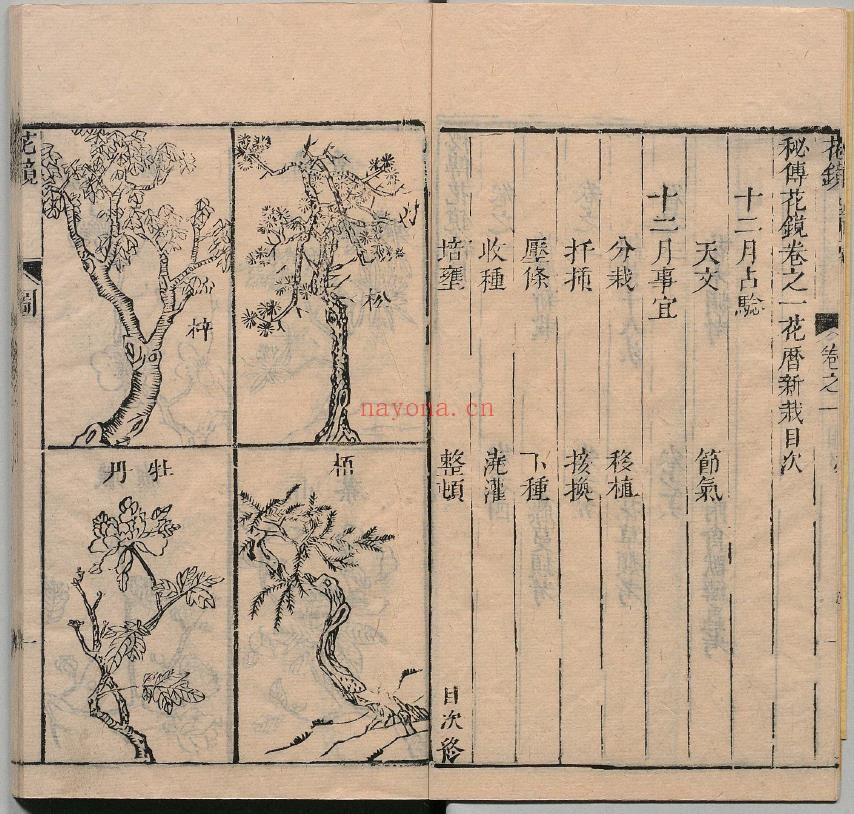 花鏡
卷之一
秘傳花鏡卷之一花曆新栽目次
十二月占驗
天文 節氣
十二月事宜
分栽 移植
扦插 接換
壓條 下種
收種 澆灌
培壅 整頓
目次終
松
梓
栢
牡丹
花鏡
圖
一
nayona.cn